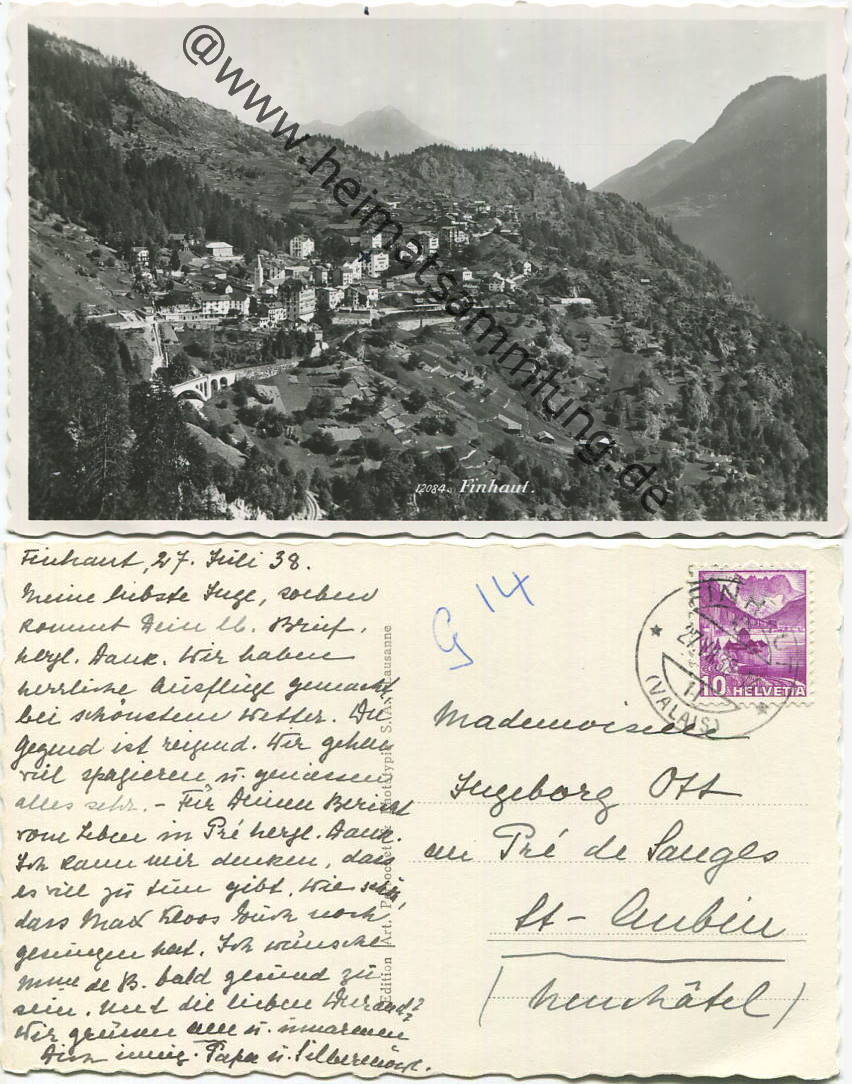 @www.heimatsammlung.de
12084. Finhaut.
Finhaut, 27. Juli 38.
Meine liebste Inge, soeben
kommt Dein lb. Brief,
herzl. Dank. Wir haben
herrliche Ausflüge gemacht
bei schönstem Wetter. Die
Gegend ist reizend. Wir gehen
viel spazieren u. geniessen
alles sehr. – Für Deinen Bericht
vom Leben in Pré herzl. Dank.
Ich kann mir denken, dass
es viel zu tun gibt. Wie schön,
dass Max Kloos Euch noch
gesungen hat. Ich wünsche
Mme de B. bald gesund zu
sein. Und die lieben
Wir grüssen alle u. umarmen
Dich innig. Papa u.
Edition Art. Perrochet Phototypie S.A. Lausanne
G 14
FINHAUT
27.VII.38
(VALAIS)
10 HELVETIA
Mademoiselle
Ingeborg Ott
au Pré de Sauges
St-Aubin
(Neuchâtel)